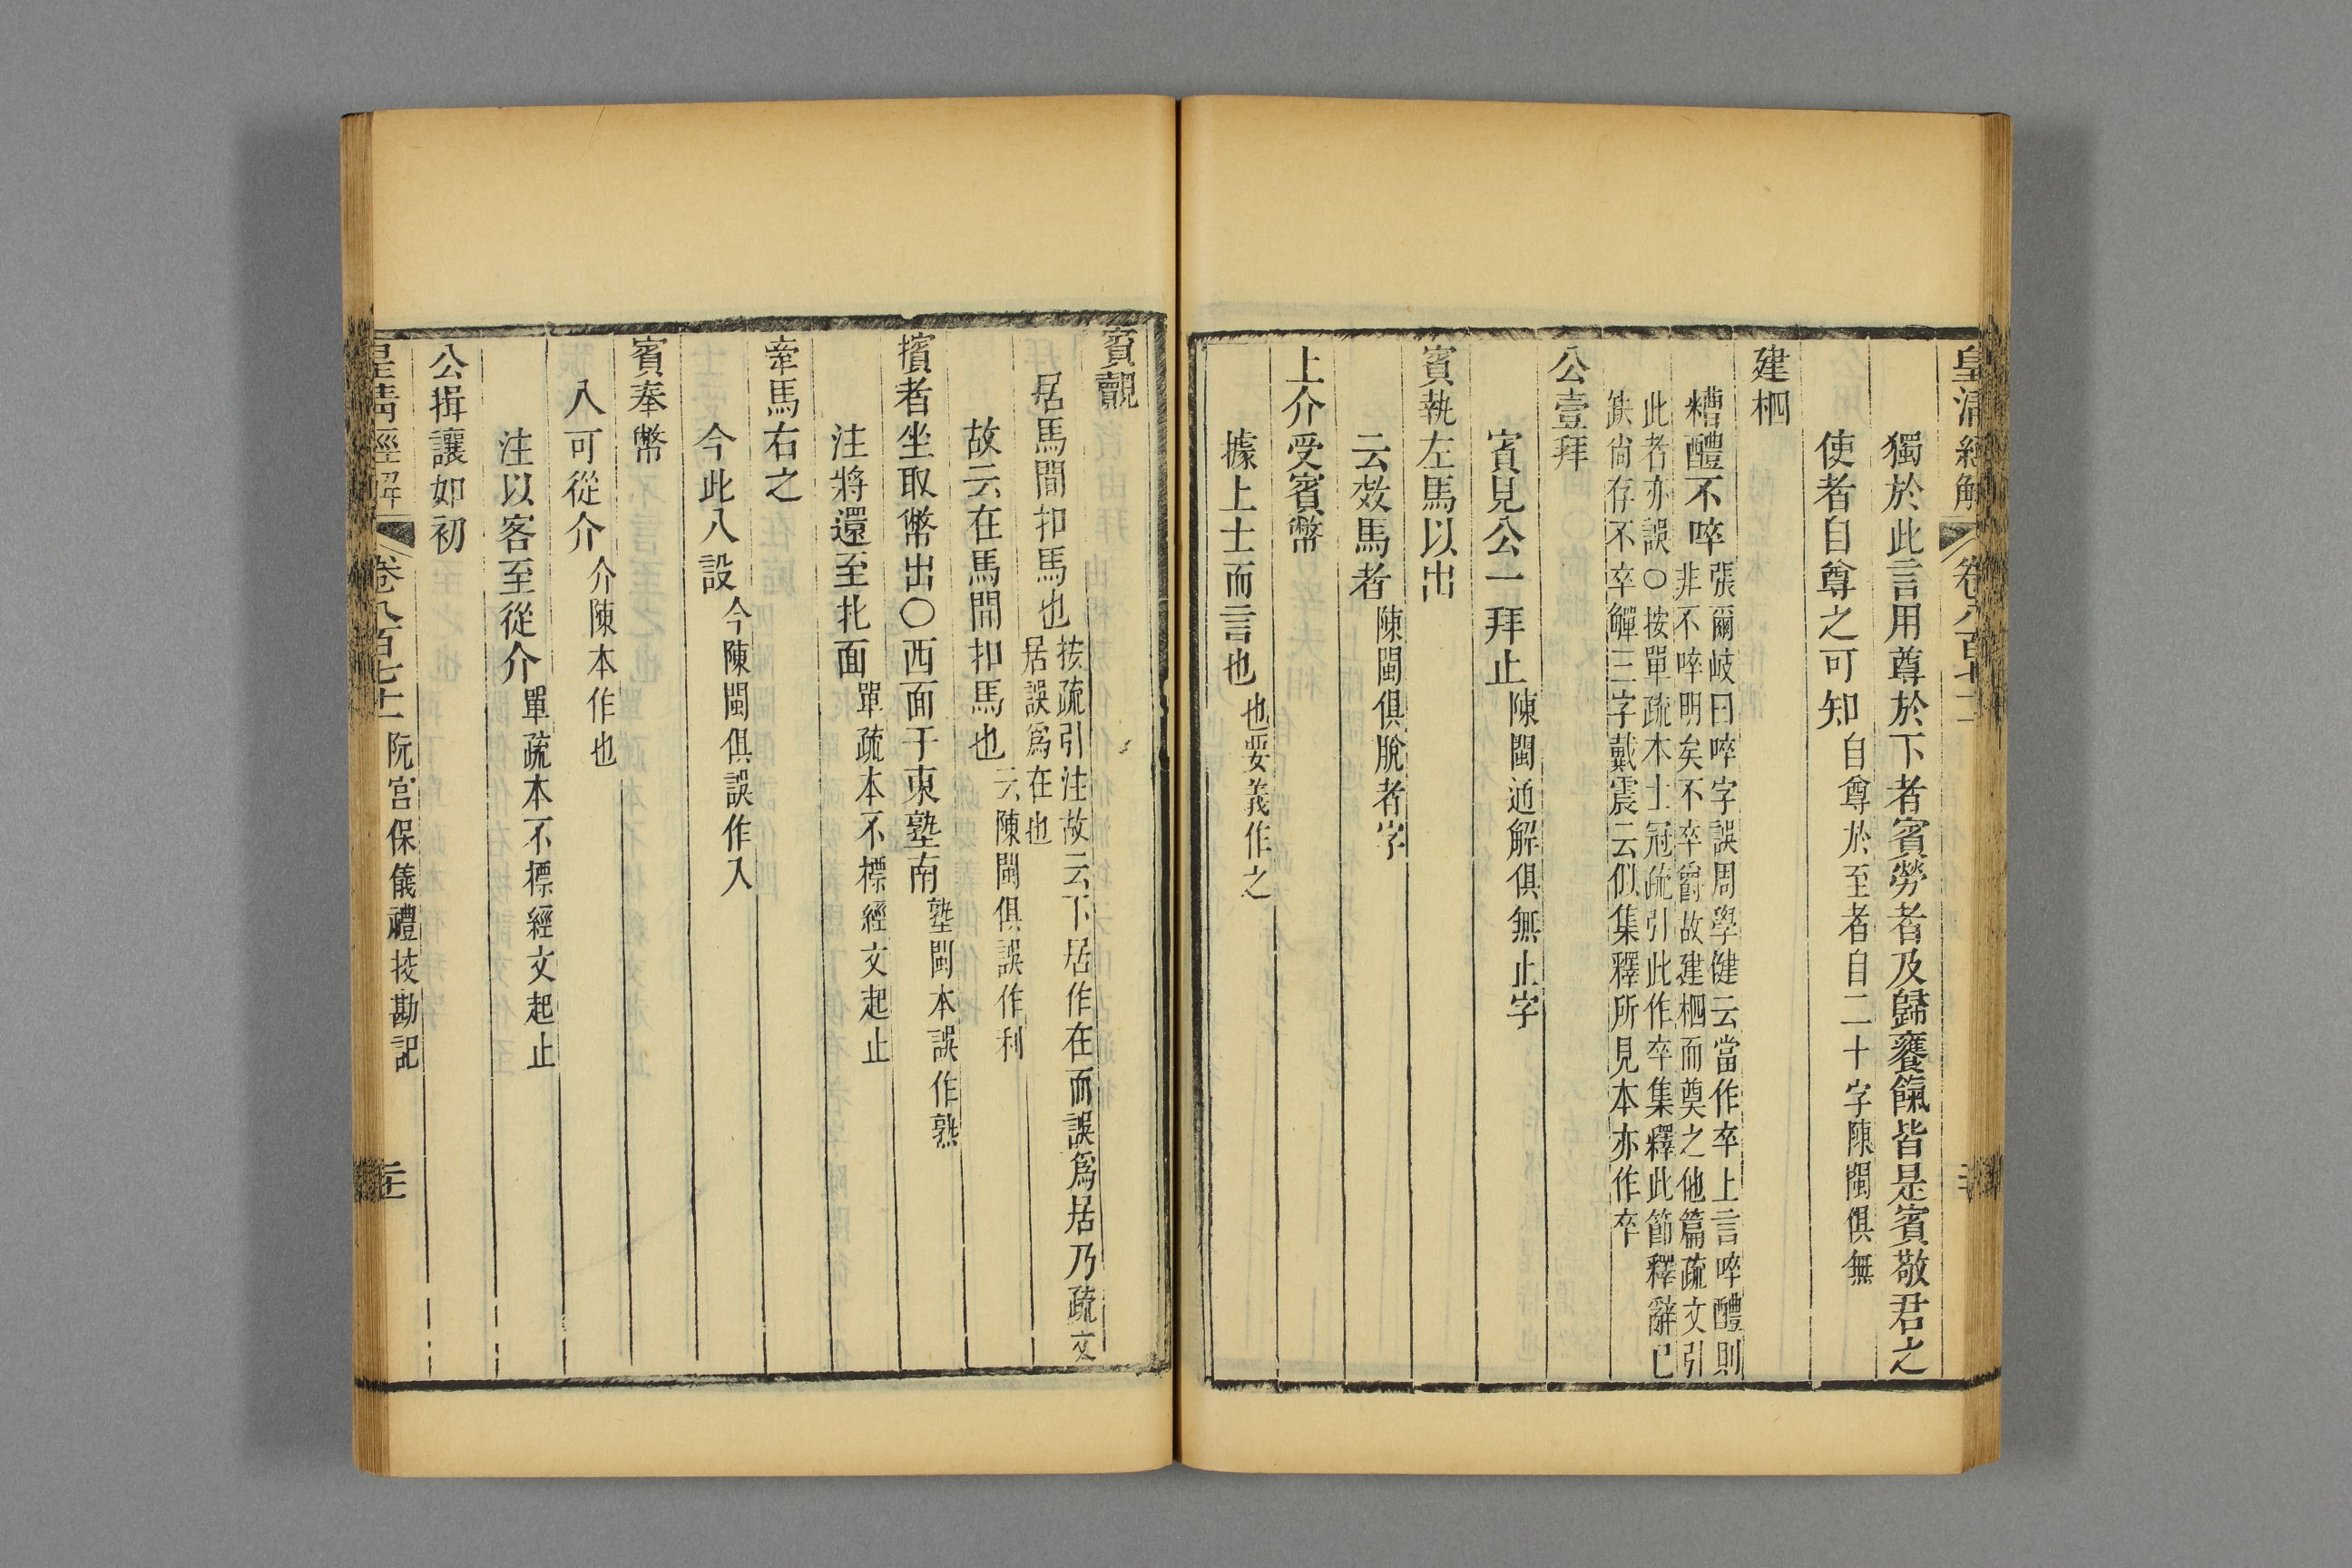 皇清經解 卷八百七十一
獨於此言用尊於下者賓勞者及歸饔餼皆是賓敬君之
使者自尊之可知自尊於至者自二十字陳閩俱無
建柶
糟醴不啐張爾岐曰啐字誤周學健云當作卒上言啐醴則
非不啐明矣不卒觶故建柶而奠之他篇疏文引
此者亦誤○按單疏本士冠疏引此作卒集釋此節釋辭已
缺尙存不卒觶三字戴震云似集釋所見本亦作卒
公壹拜
賓見公一拜止陳閩通解俱無止字
賓執左馬以出
云效馬者陳閩俱脫者字
上介受賓幣
據上士而言也也要義作之
賓覿
居馬間扣馬也按疏引注故云下居作在而誤爲居乃疏文
居誤爲在也
故云在馬間扣馬也云陳閩俱誤作利
擯者坐取幣出○西面于東塾南塾閩本誤作熟
注將還至北面單疏本不標經文起止
牽馬右之
今此八設今陳閩俱誤作入
賓奉幣
入可從介介陳本作也
注以客至從介單疏本不標經文起止
公揖讓如初
皇清經解 卷八百七十一 阮宮保儀禮挍勘記